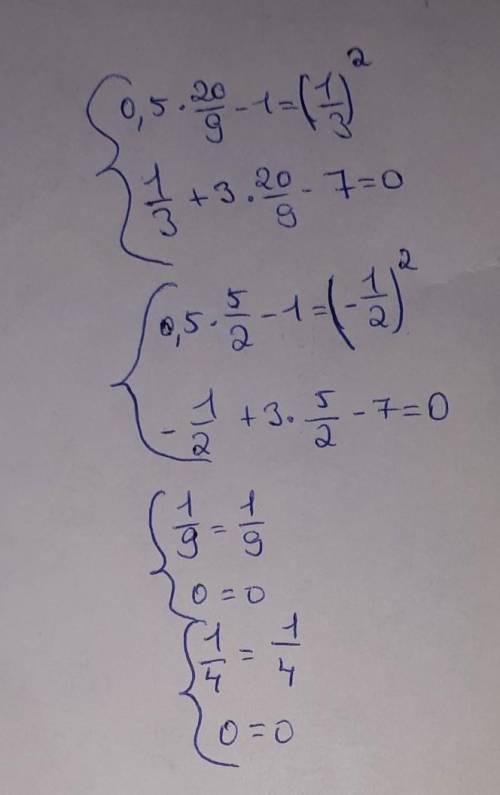 0,5 · 20/9 - 1 = (1/3)²
1/3 + 3 · 20/9 - 7 = 0
0,5 · 5/2 - 1 = (-1/2)²
-1/2 + 3 · 5/2 - 7 = 0
1/9 = 1/9
0 = 0
1/4 = 1/4
0 = 0